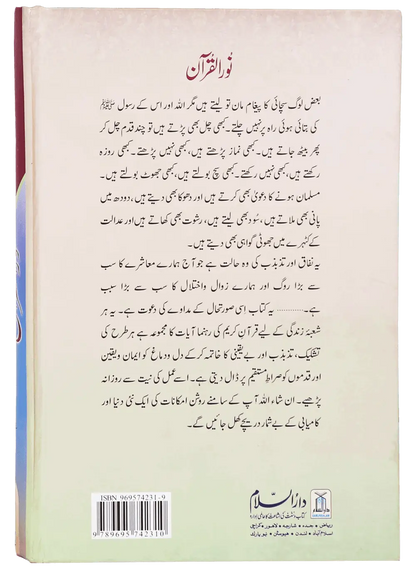 نُورالقُرآن
بعض لوگ سچائی کا پیغام مان تو لیتے ہیں مگر اللہ اور اس کے رسول ﷺ
کی بتائی ہوئی راہ پر نہیں چلتے۔ کبھی چل بھی پڑتے ہیں تو چند قدم چل کر
پھر بیٹھ جاتے ہیں۔ کبھی نماز پڑھتے ہیں، کبھی نہیں پڑھتے۔ کبھی روزہ
رکھتے ہیں، کبھی نہیں رکھتے۔ کبھی سچ بولتے ہیں، کبھی جھوٹ بولتے ہیں۔
مسلمان ہونے کا دعویٰ بھی کرتے ہیں اور دھوکا بھی دیتے ہیں، دودھ میں
پانی بھی ملاتے ہیں، سُود بھی لیتے ہیں، رشوت بھی کھاتے ہیں اور عدالت
کے کٹہرے میں جھوٹی گواہی بھی دیتے ہیں۔
یہ نفاق اور تذبذب کی وہ حالت ہے جو آج ہمارے معاشرے کا سب
سے بڑا روگ اور ہمارے زوال واختلال کا سب سے بڑا سبب
ہے۔............ یہ کتاب اسی صورتحال کے مداوے کی دعوت ہے۔ یہ ہر
شعبۂ زندگی کے لیے قرآن کریم کی رہنما آیات کا مجموعہ ہے ہر طرح کی
تشکیک، تذبذب اور بے یقینی کا خاتمہ کرکے دل و دماغ کو ایمان ویقین
اور قدموں کو صراطِ مستقیم پر ڈال دیتی ہے۔ اسے عمل کی نیت سے روزانہ
پڑھیے۔ ان شاء اللہ آپ کے سامنے روشن امکانات کی ایک نئی دنیا اور
کامیابی کے بے شمار دریچے کھل جائیں گے۔
ISBN 969574231-9
9 789695 742310
دارُالسلام
کتاب و سنت کی اشاعت کا عالمی ادارہ
ریاض • جدہ • شارجہ • لاہور • کراچی
اسلام آباد • لندن • ہیوسٹن • نیویارک